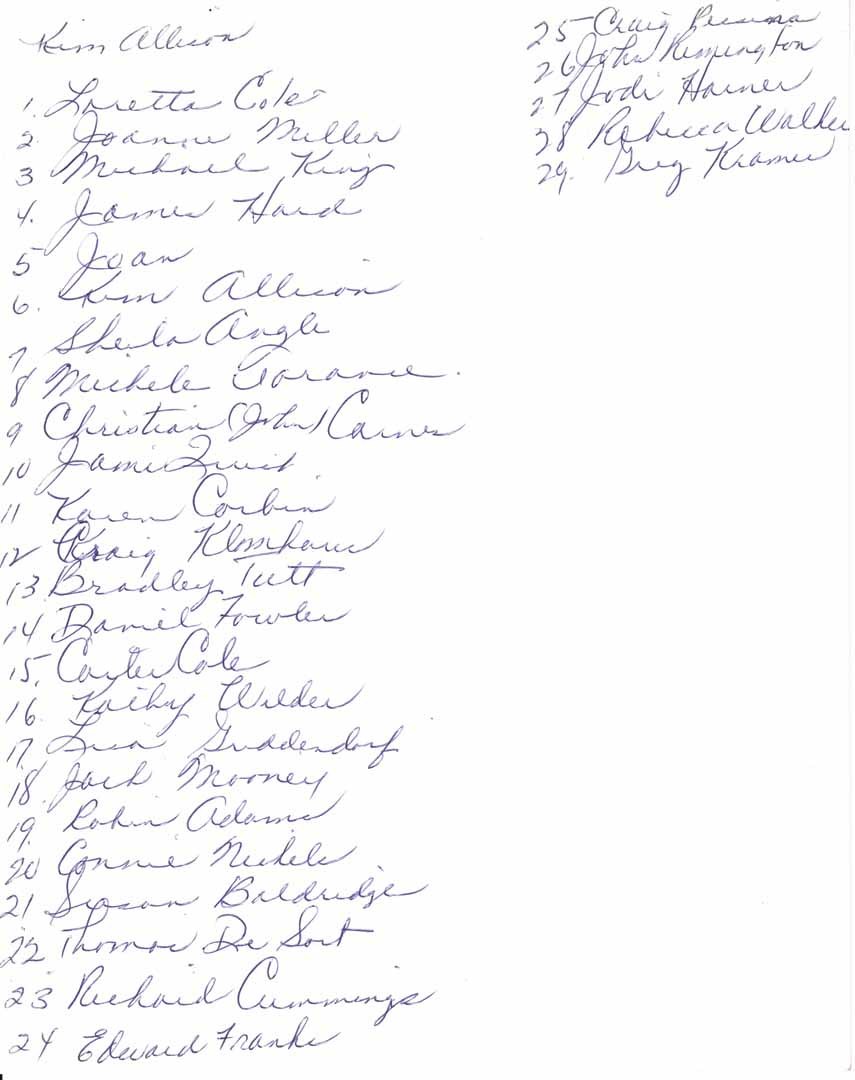 Kim Allison
1. Loretta Cole
2. Joanne Miller
3 Michael King
4. James Hard
5 Joan
6. Kim Allison
7 Sheila Angle
8 Michele
9 Christian (John) Carnes
10 Jami
11 Karen Corbin
12 Craig
13 Bradley Tutt
14 Daniel Fowler
15. Carter Cole
16 Kathy Wilder
17 Lisa Guddendorf
18. Jack Mooney
19. Robin Adams
20 Connie Nichels
21 Susan Baldridge
22 Thomas De Sort
23 Richard Cummings
24 Edward Franks
25 Craig
26 John Remington
27 Jodi Harner
28 Rebecca Walker
29. Greg Kramer